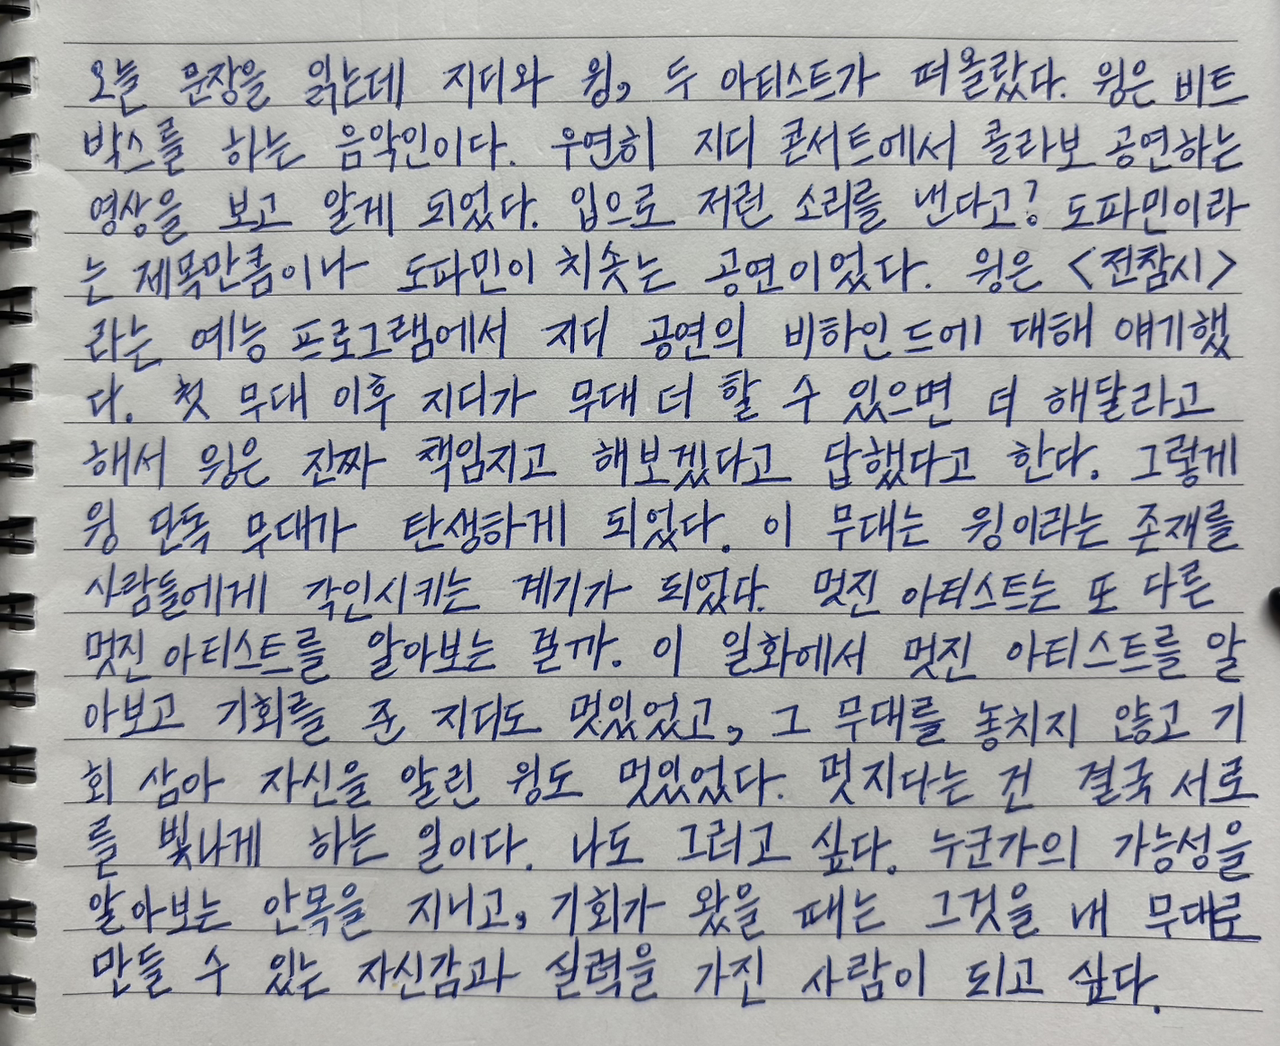 오늘 문장을 읽는데 지디와 윙, 두 아티스트가 떠올랐다. 윙은 비트
박스를 하는 음악인이다. 우연히 지디 콘서트에서 콜라보 공연하는
영상을 보고 알게 되었다. 입으로 저런 소리를 낸다고? 도파민이라
는 제목만큼이나 도파민이 치솟는 공연이었다. 윙은 <전참시>
라는 예능 프로그램에서 지디 공연의 비하인드에 대해 얘기했
다. 첫 무대 이후 지디가 무대 더 할 수 있으면 더 해달라고
해서 윙은 진짜 책임지고 해보겠다고 답했다고 한다. 그렇게
윙 단독 무대가 탄생하게 되었다. 이 무대는 윙이라는 존재를
사람들에게 각인시키는 계기가 되었다. 멋진 아티스트는 또 다른
멋진 아티스트를 알아보는 걸까. 이 일화에서 멋진 아티스트를 알
아보고 기회를 준 지디도 멋있었고, 그 무대를 놓치지 않고 기
회 삼아 자신을 알린 윙도 멋있었다. 멋지다는 건 결국 서로
를 빛나게 하는 일이다. 나도 그러고 싶다. 누군가의 가능성을
알아보는 안목을 지니고, 기회가 왔을 때는 그것을 내 무대로
만들 수 있는 자신감과 실력을 가진 사람이 되고 싶다.